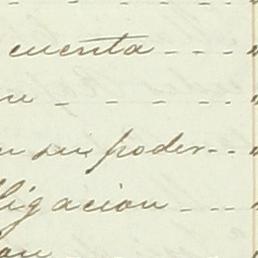 cuenta - - - "
- - - - "
su poder - - "
ligacion - - - "